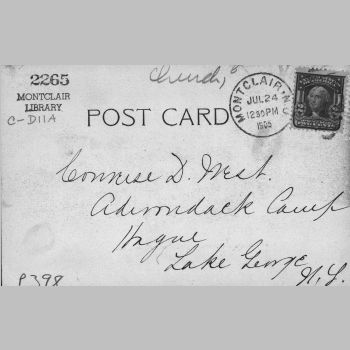 Church,
2265
MONTCLAIR
LIBRARY
C-D11A
POST CARD
MONTCLAIR, N.J.
JUL 24
12 30 PM
1905
D. West.
Adirondack Camp
Hague
Lake George
N.Y.
P398